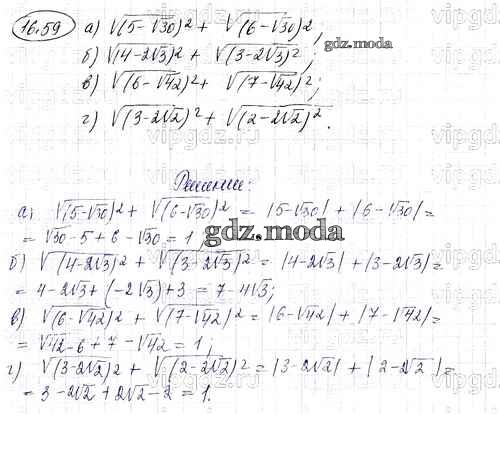 16.59 а) √(5-√30)² + √(6-√30)²;
gdz.moda
б) √(4-2√3)² + √(3-2√3)²;
в) √(6-√42)² + √(7-√42)²;
г) √(3-2√2)² + √(2-2√2)².
Решение:
а) √(5-√30)² + √(6-√30)² = |5-√30| + |6-√30| =
= √30 - 5 + 6 - √30 = 1
gdz.moda
б) √(4-2√3)² + √(3-2√3)² = |4-2√3| + |3-2√3| =
= 4-2√3 + (-2√3) + 3 = 7-4√3;
в) √(6-√42)² + √(7-√42)² = |6-√42| + |7-√42| =
= √42-6 + 7 - √42 = 1;
г) √(3-2√2)² + √(2-2√2)² = |3-2√2| + |2-2√2| =
= 3-2√2 + 2√2-2 = 1.
vipgdz